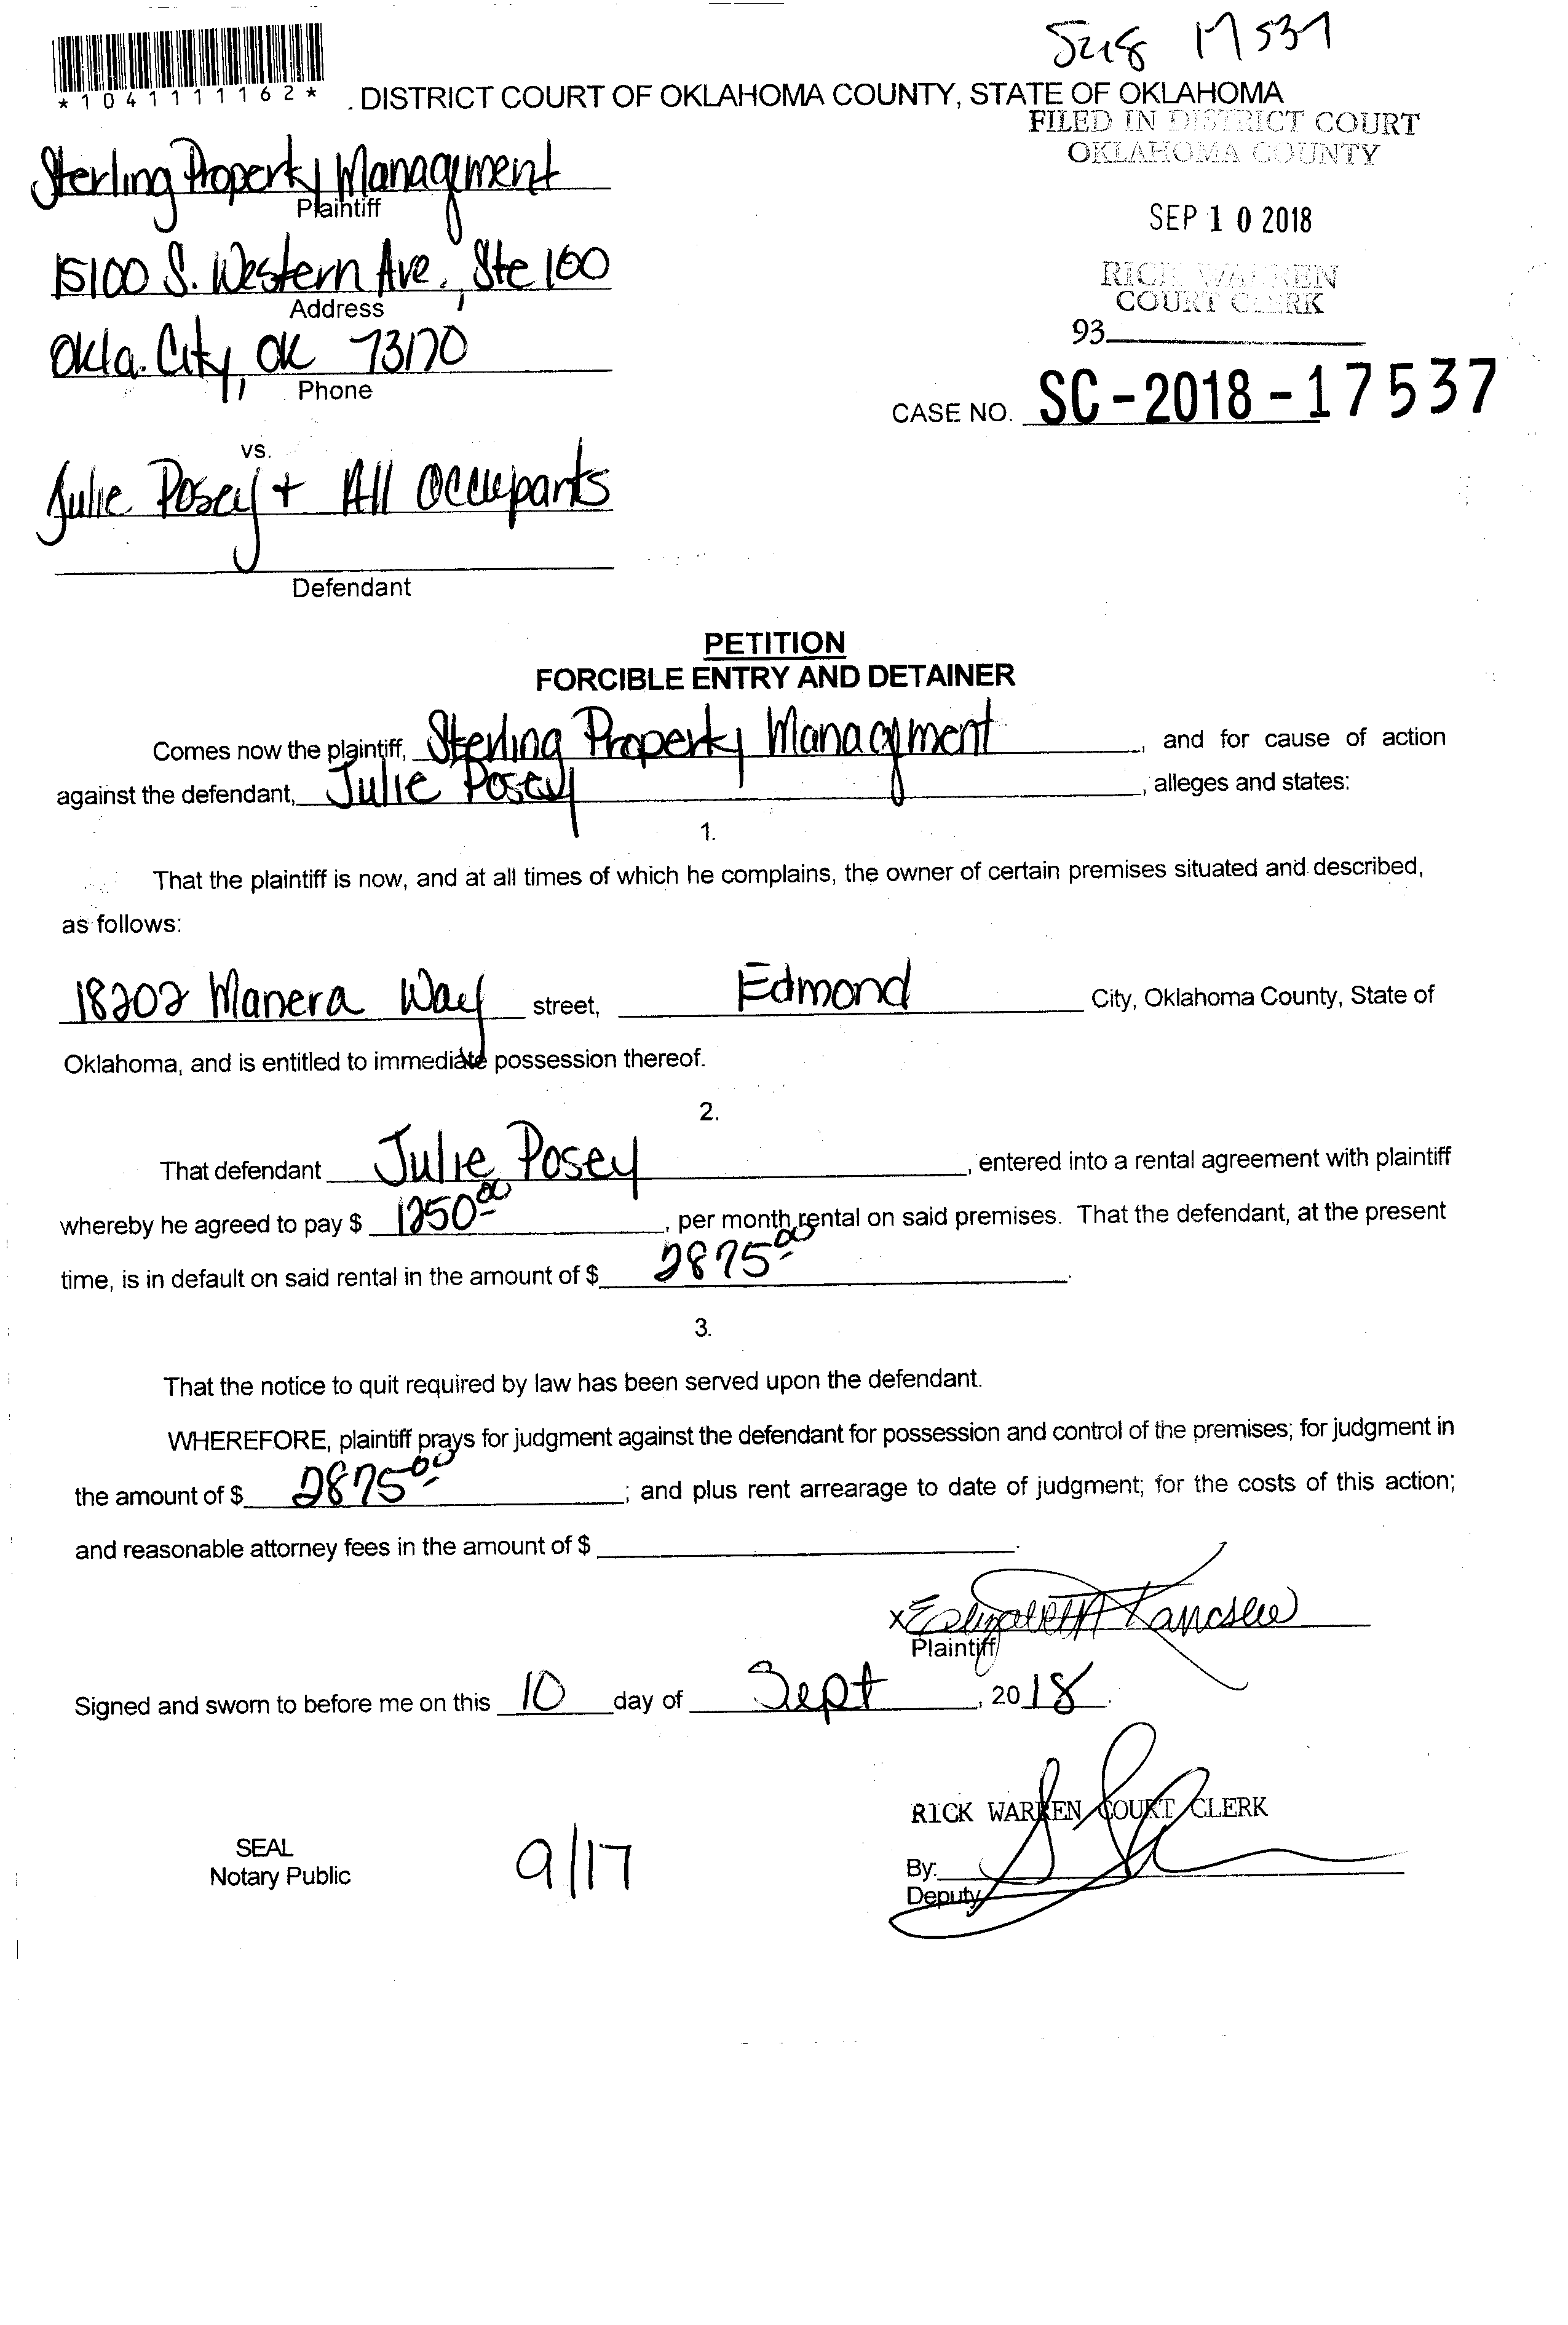 *1041111162*
. DISTRICT COURT OF OKLAHOMA COUNTY, STATE OF OKLAHOMA
FILED IN DISTRICT COURT
OKLAHOMA COUNTY
Sterling Property Managment
Plaintiff
SEP 10 2018
15100 S. Western Ave., Ste 100
Address
RICK WARREN
COURT CLERK
Okla. City, OK 73170
Phone
93
CASE NO. SC-2018-17537
vs.
Julie Posey + All Occupants
Defendant
PETITION
FORCIBLE ENTRY AND DETAINER
Comes now the plaintiff, Sterling Property Managment, and for cause of action
against the defendant, Julie Posey, alleges and states:
1.
That the plaintiff is now, and at all times of which he complains, the owner of certain premises situated and described,
as follows:
18202 Manera Way street, Edmond City, Oklahoma County, State of
Oklahoma, and is entitled to immediate possession thereof.
2.
That defendant Julie Posey, entered into a rental agreement with plaintiff
whereby he agreed to pay $ 1250.00, per month rental on said premises. That the defendant, at the present
time, is in default on said rental in the amount of $ 2875.00.
3.
That the notice to quit required by law has been served upon the defendant.
WHEREFORE, plaintiff prays for judgment against the defendant for possession and control of the premises; for judgment in
the amount of $ 2875.00; and plus rent arrearage to date of judgment; for the costs of this action;
and reasonable attorney fees in the amount of $
x Elizabeth
Plaintiff
Signed and sworn to before me on this 10 day of Sept, 2018.
RICK WARREN COURT CLERK
SEAL
Notary Public
9/17
By:
Deputy